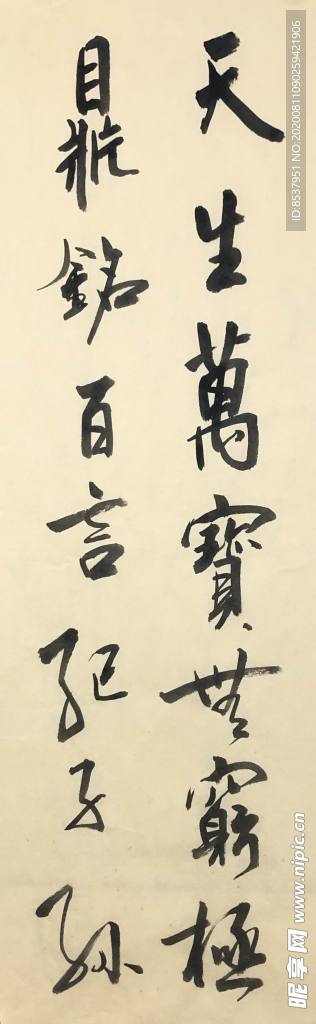 天生萬寶無窮極
鼎銘百言記子孫
ID:8537951 NO:20200811090259421906
昵享网 www.nipic.cn